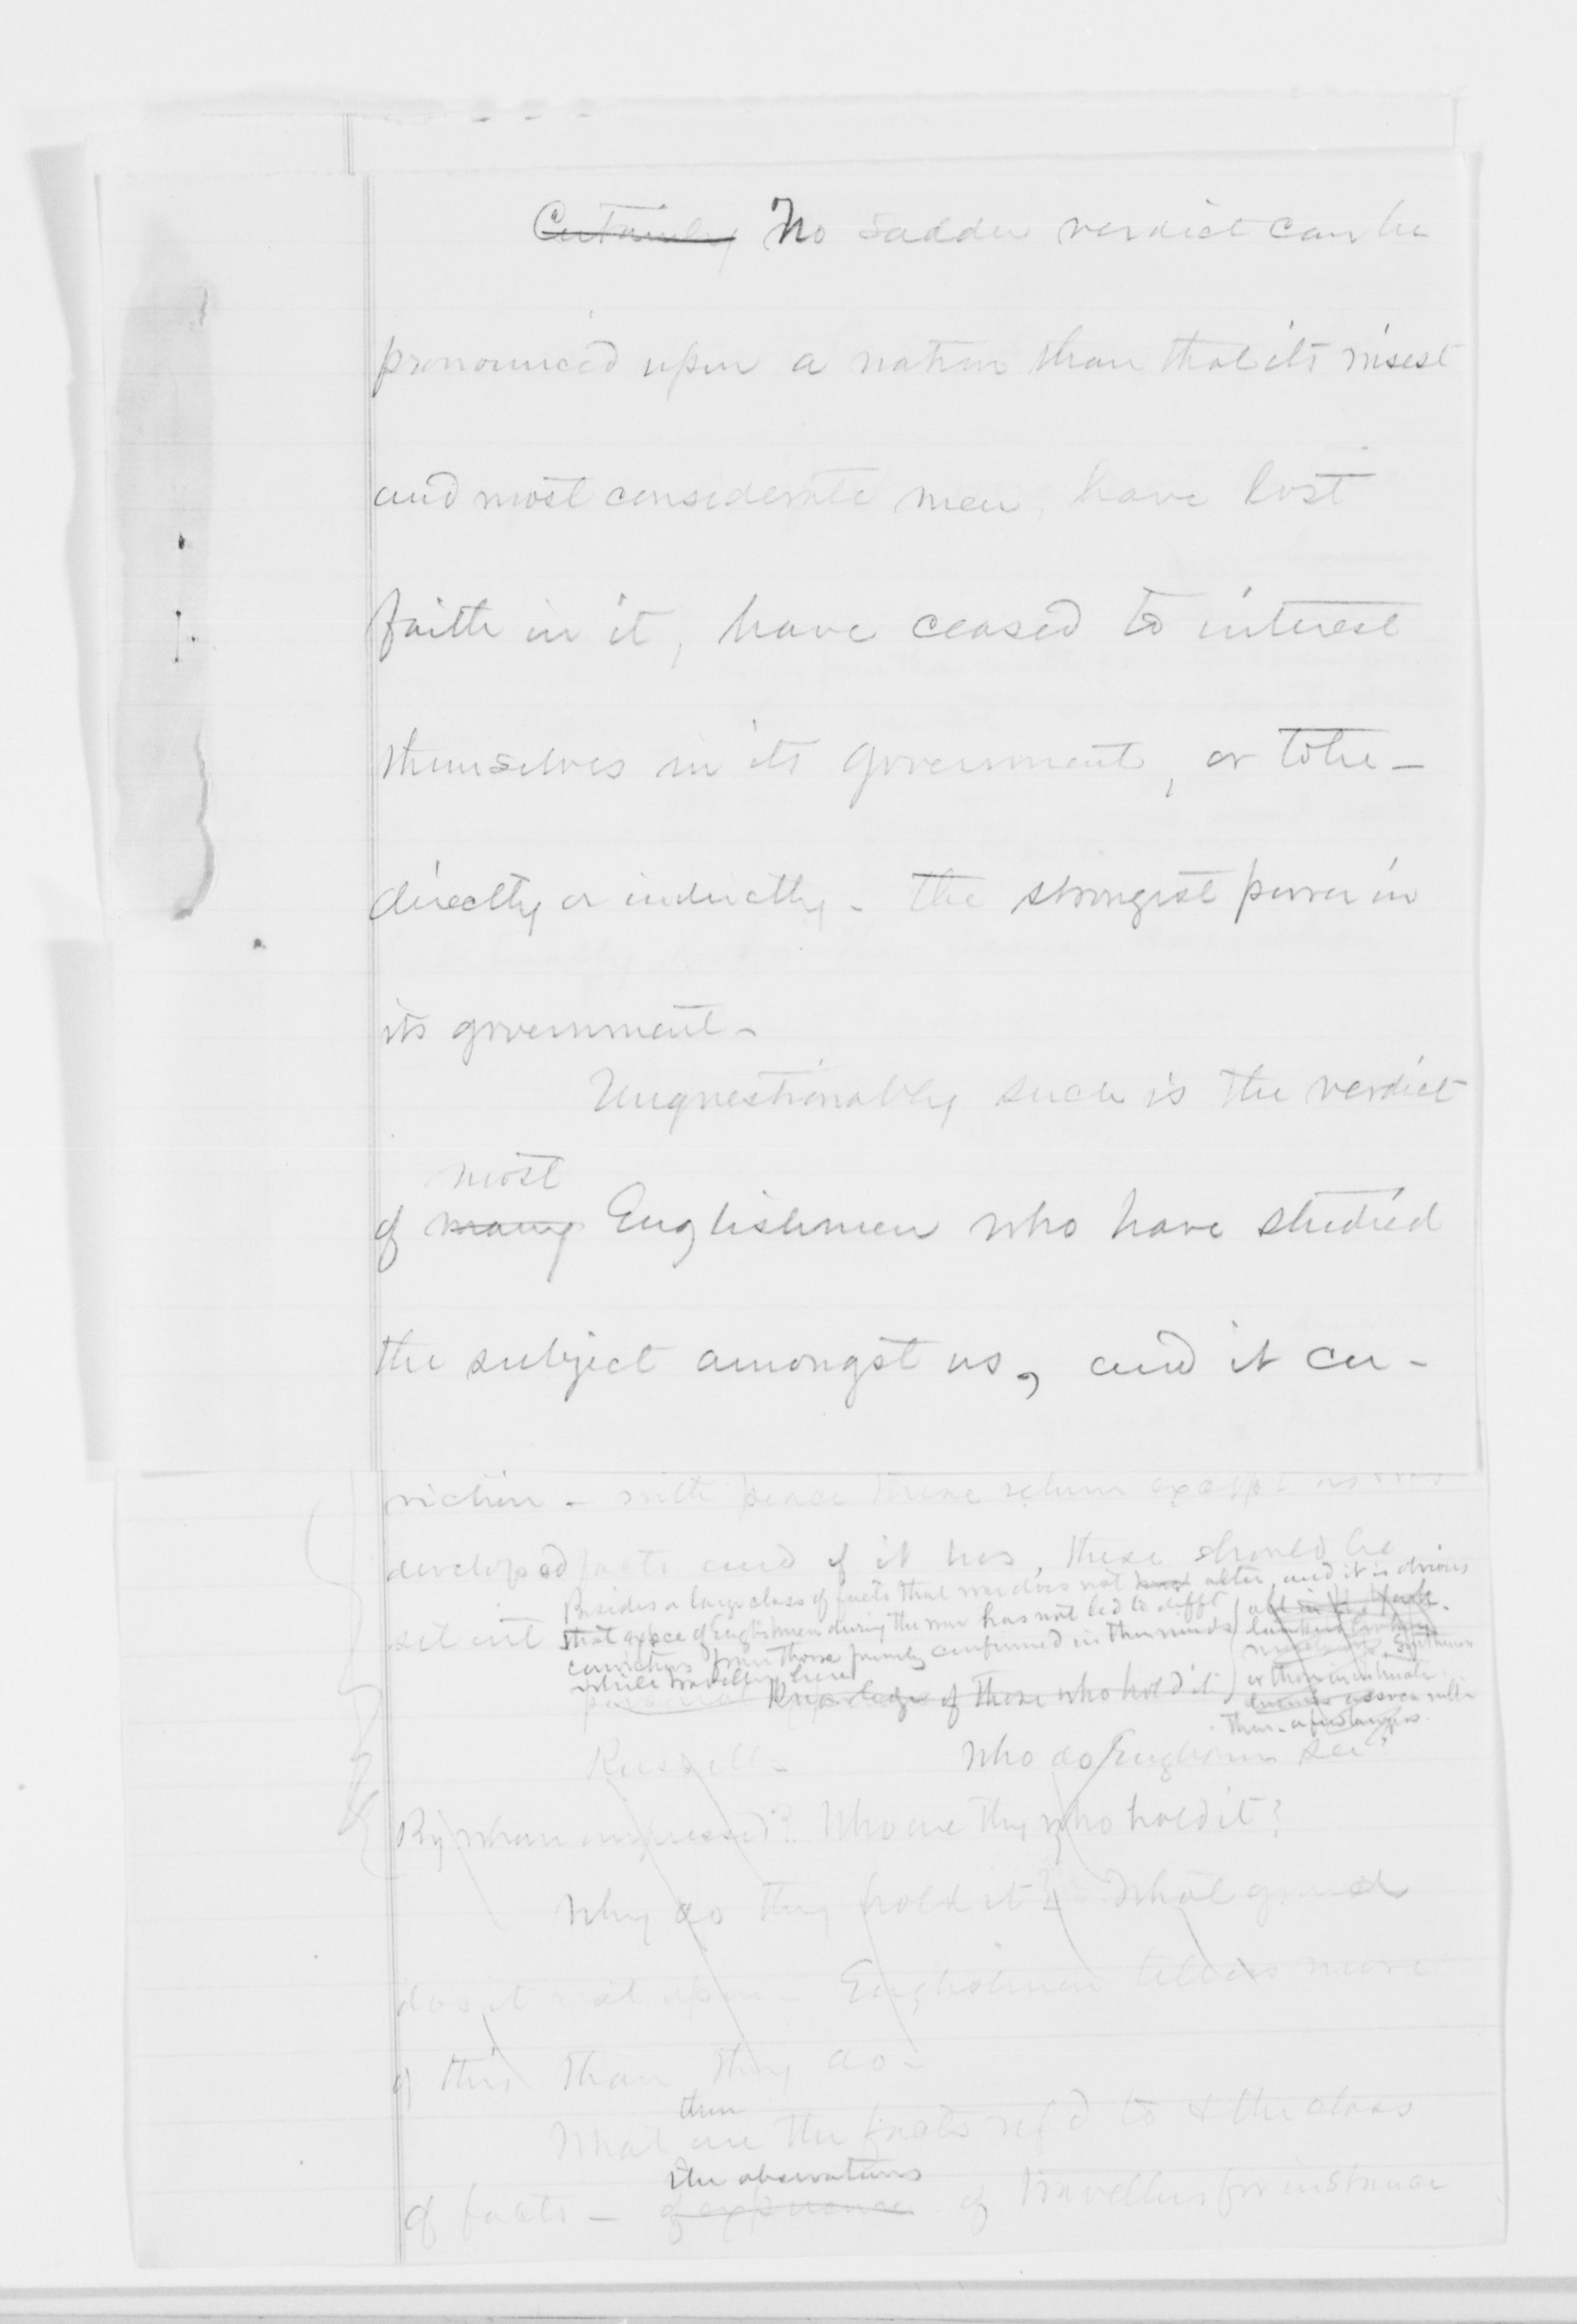 Certainly No sadder verdict can be
pronounced upon a nation than that its wisest
and most considerate men, have lost
faith in it, have ceased to interest
themselves in its government, or to be -
directly or indirectly - the strongest power in
its government -
Unquestionably such is the verdict
most
of many Englishmen who have studied
the subject amongst us, and it cu-
viction - with peace these return except as
developed facts and if it has, these should be
Besides a large class of facts that war does not alter, and it is obvious
set out that expce of Englishmen during the war has not led to difft
convictions from those formerly confirmed in their minds
while travelling here
knowledge of those who hold it
or their intimate
Russell's Who do Englishmen see?
By whom expressed? Who are they who hold it?
Why do they hold it? What grounds
does it rest upon - Englishmen tell us more
of this than they do -
then
What are the facts ref'd to & the class
the observations
of facts - of experience of travellers for instance